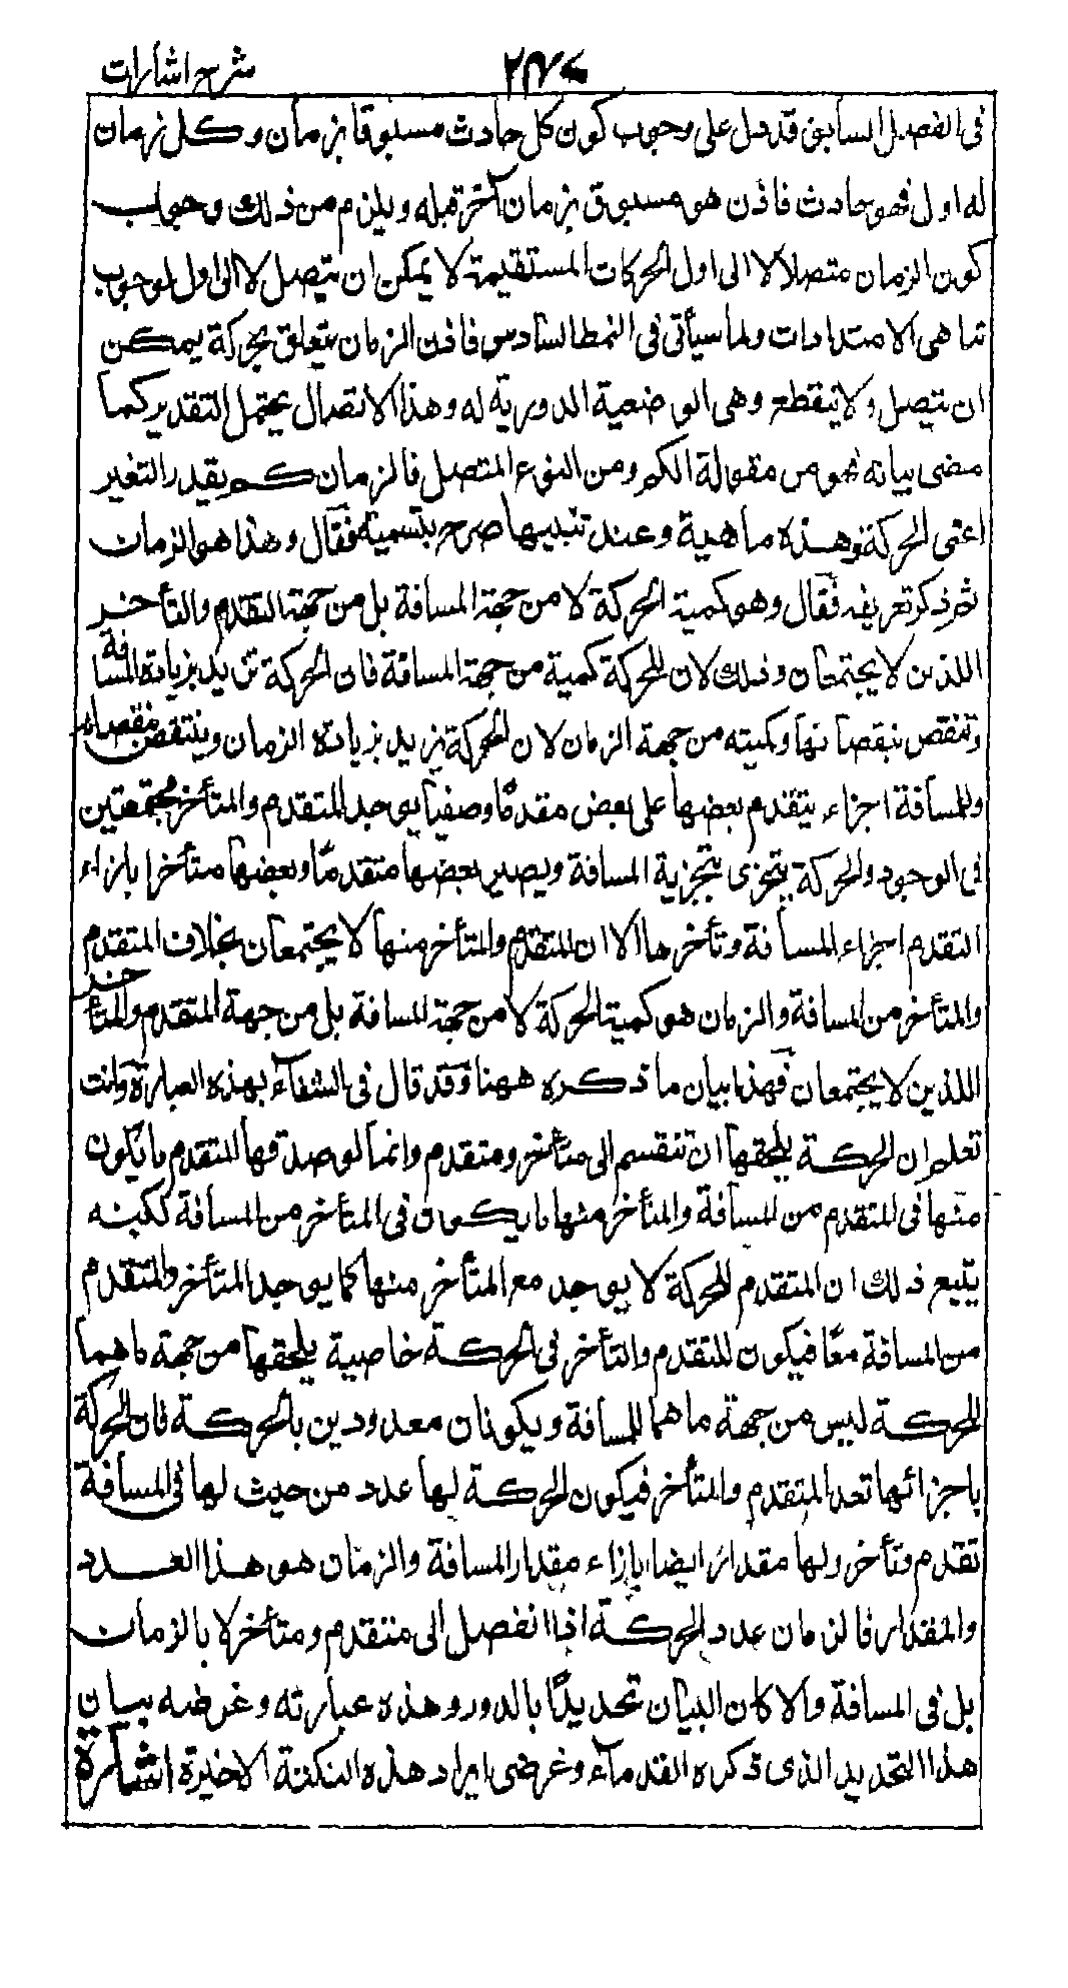 شرح اشارات
في الفصل السابق قد دل على وجوب كون كل حادث مسبوقا بزمان وكل زمان
له اول فهو حادث فاذن هو مسبوق بزمان آخر قبله ويلزم من ذلك وجواب
كون الزمان متصلا لا الى اول الحركات المستقيمة لا يمكن ان يتصل لا الى اول لوجوب
تناهى الامتدادات ولما سيأتى فى النمط السادس فاذن الزمان يتعلق بحركة يمكن
ان يتصل ولا ينقطع وهى الوضعية الدورية له وهذا الاتصال يحتمل التقدير كما
مضى بيانه فهو من مقولة الكم ومن النوع المتصل فالزمان كم يقدر التغير
اعنى الحركة وهذه ماهية وعند تنبيها صرح بتسميته فقال وهذا هو الزمان
ثم ذكر تعريفه فقال وهو كمية الحركة لا من جهة المسافة بل من جهة التقدم والتأخر
اللذين لا يجتمعان وذلك لان للحركة كمية من جهة المسافة فان الحركة تزيد بزيادة المسافة
وتنقص بنقصانها وكميته من جهة الزمان لان الحركة يزيد بزيادة الزمان وينتقص بنقصانه
وللمسافة اجزاء يتقدم بعضها على بعض مقدمًا وصفيا يوجد المتقدم والمتأخر مجتمعتين
فى الوجود والحركة يتجزى بتجزية المسافة ويصير بعضها متقدمًا وبعضها متأخرا بازاء
التقدم اجزاء المسافة وتأخرها الا ان المتقدم والمتأخر منها لا يجتمعان بخلاف المتقدم
والمتأخر من المسافة والزمان هو كمية الحركة لا من جهة المسافة بل من جهة المتقدم والمتأخر
اللذين لا يجتمعان فهذا بيان ما ذكره ههنا وقد قال فى الشفاء بهذه العبارة وانت
تعلم ان الحركة يلحقها ان تنقسم الى متأخر ومتقدم وانما يوجد فيها المتقدم ما يكون
منها فى المتقدم من المسافة والمتأخر منها ما يكون فى المتأخر من المسافة لكنه
يتبع ذلك ان المتقدم للحركة لا يوجد مع المتأخر منها كما يوجد المتأخر والمتقدم
من المسافة معًا فيكون للتقدم والتأخر فى الحركة خاصية يلحقها من جهة ما هما
للحركة ليس من جهة ما هما للمسافة ويكونان معدودين بالحركة فان الحركة
باجزائها تعد المتقدم والمتأخر فيكون الحركة لها عدد من حيث لها فى المسافة
تقدم وتأخر ولها مقدار ايضا بازاء مقدار المسافة والزمان هو هذا العدد
والمقدار فالزمان عدد الحركة اذا انفصل الى متقدم ومتأخر لا بالزمان
بل فى المسافة والا كان البيان تحديدًا بالدور وهذه عبارته وغرضه بيان
هذا التحديد الذى ذكره القدماء وغرضى ايراد هذه النكتة الاخيرة اشارة